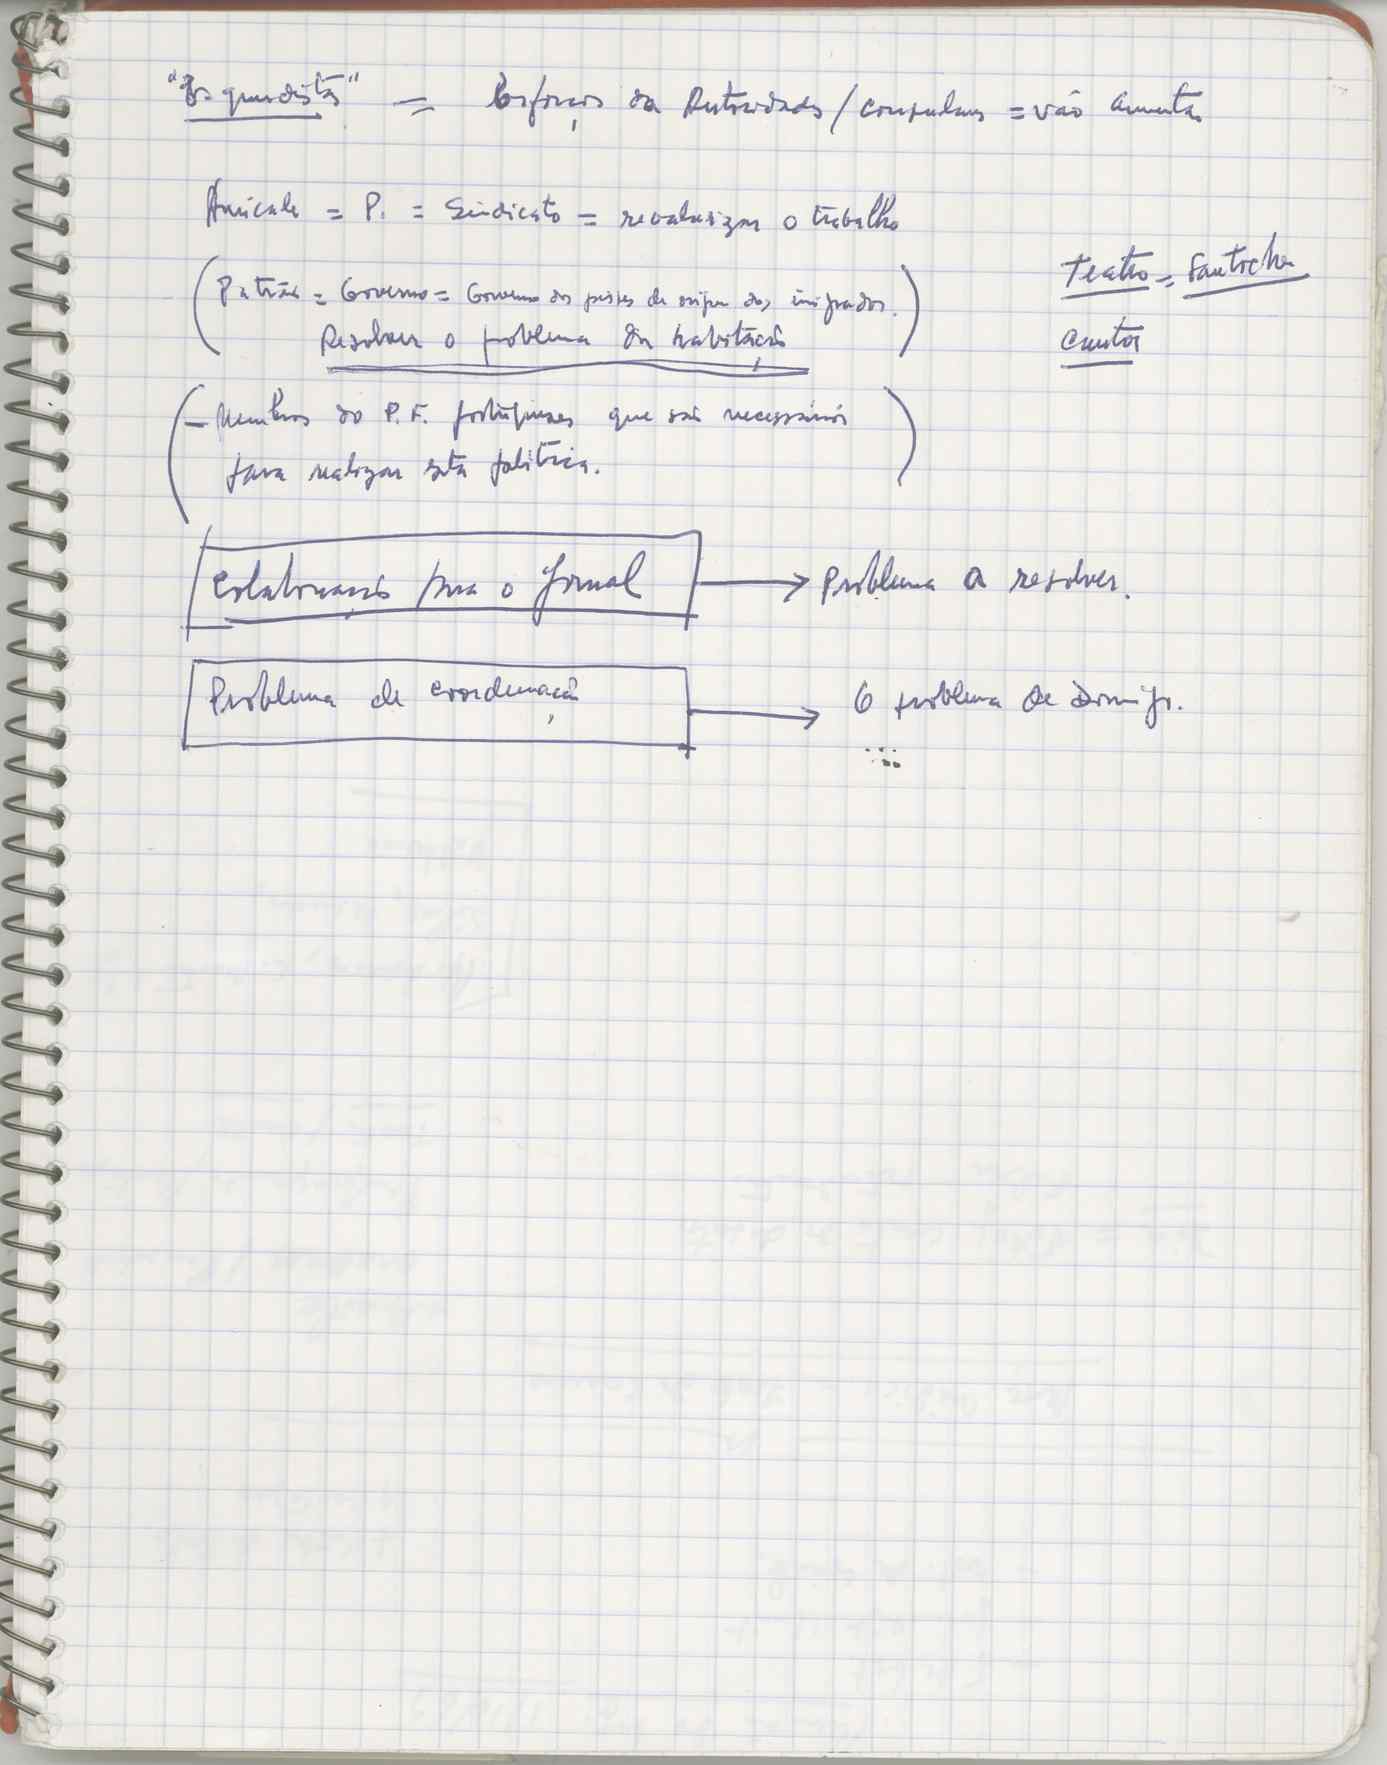 "Esquerdistas" = Esforços da Autoridades / = vão aumentar
Amicale = P. = Sindicato = revalorizar o trabalho
(Patrões = Governo = Governo dos países de origem dos imigrados.)
Resolver o problema da habitação
Teatro = Gantocha
Cantos
(- Membros do P.F. portugueses que são necessários
para realizar esta política.)
Colaboração para o Jornal → Problema a resolver.
Problema de coordenação → O problema de Domingo.